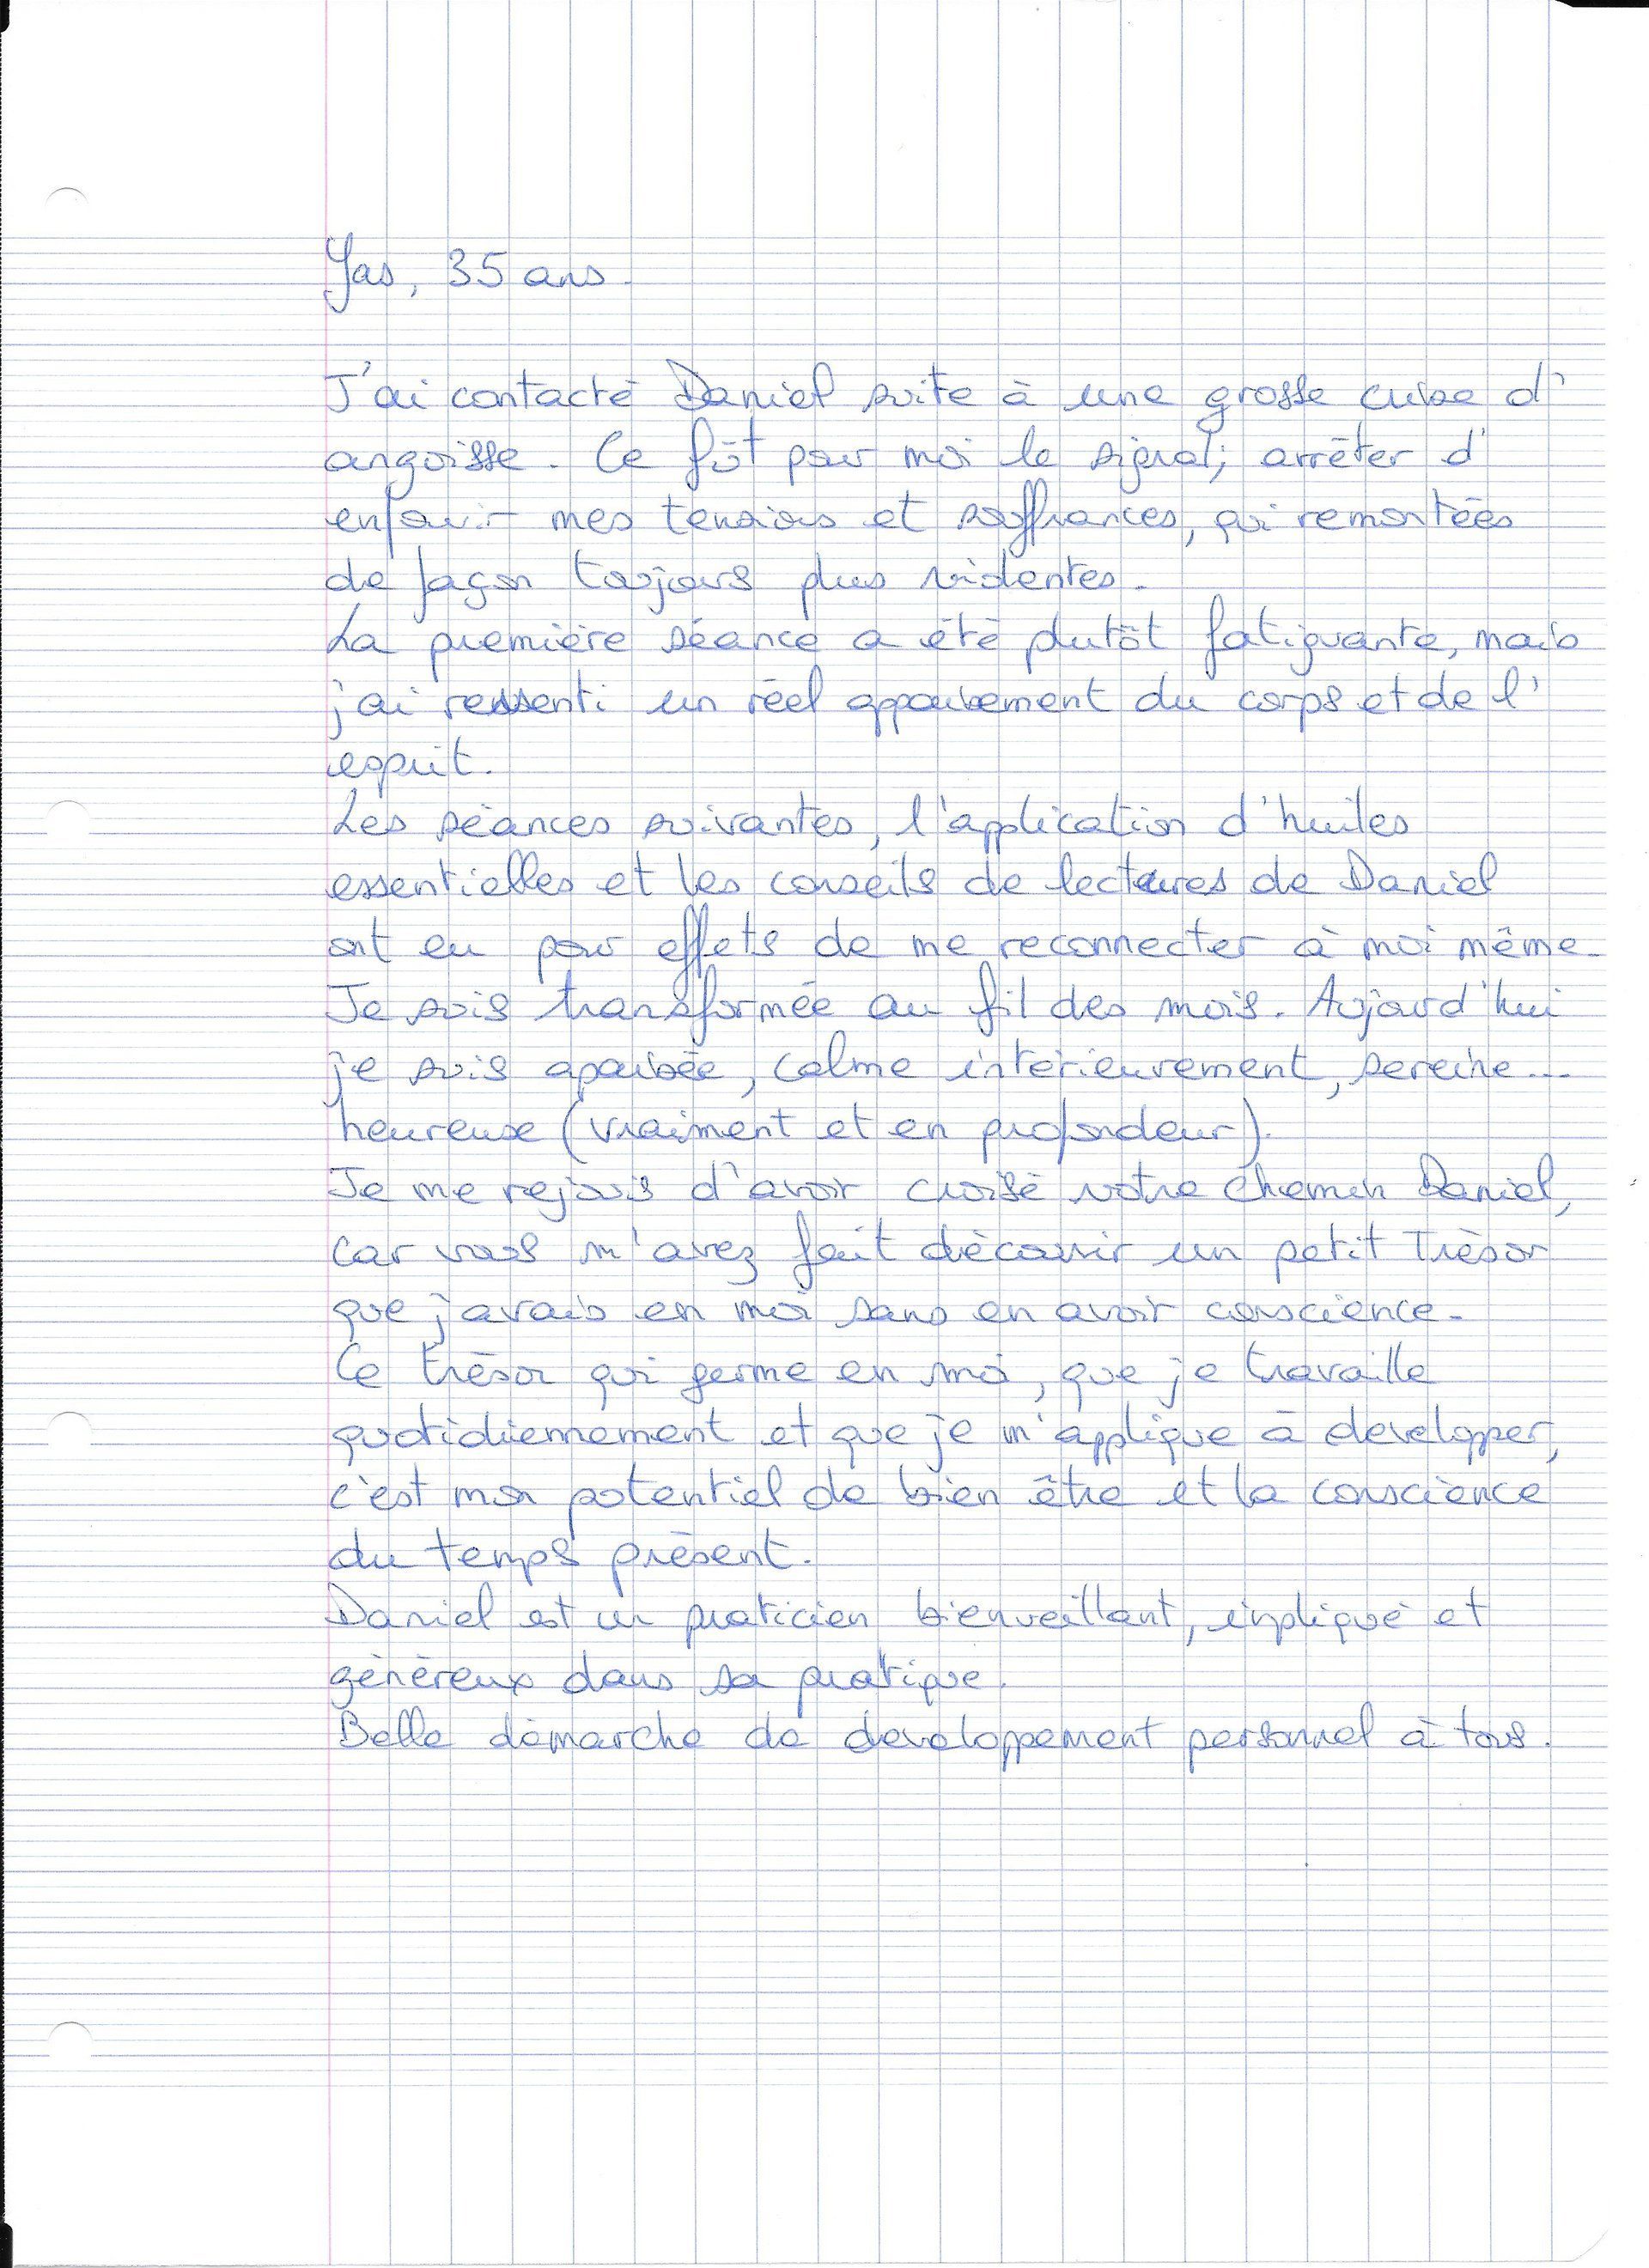 Yas, 35 ans.
J'ai contacté Daniel suite à une grosse crise d'
angoisse. Ce fût pour moi le signal; arrêter d'
enfouir mes tensions et souffrances, qui remontées
de façon toujours plus violentes.
La première séance a été plutôt fatiguante, mais
j'ai ressenti un réel appaisement du corps et de l'
esprit.
Les séances suivantes, l'application d'huiles
essentielles et les conseils de lectures de Daniel
ont eu pour effets de me reconnecter à moi même.
Je suis transformée au fil des mois. Aujourd'hui
je suis apaisée, calme intérieurement, sereine...
heureuse (vraiment et en profondeur).
Je me rejouis d'avoir croisé votre chemin Daniel,
car vous m'avez fait découvrir un petit Trésor
que j'avais en moi sans en avoir conscience.
Ce trésor qui germe en moi, que je travaille
quotidiennement et que je m'applique à developper,
c'est mon potentiel de bien être et la conscience
du temps présent.
Daniel est un praticien bienveillant, impliqué et
généreux dans sa pratique.
Belle démarche de développement personnel à tous.